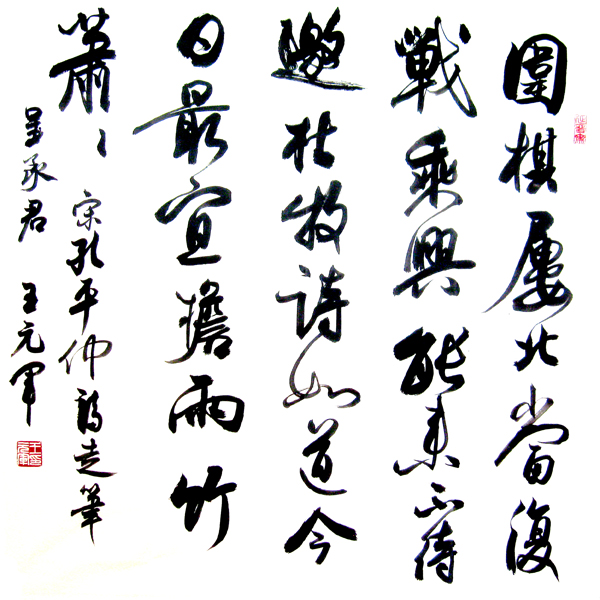 圍棋屢北當復
戰乘興能來不待
邀杜牧詩如道今
日最宜檐雨竹
蕭〻 宋孔平仲詩走筆
呈承君 王元軍